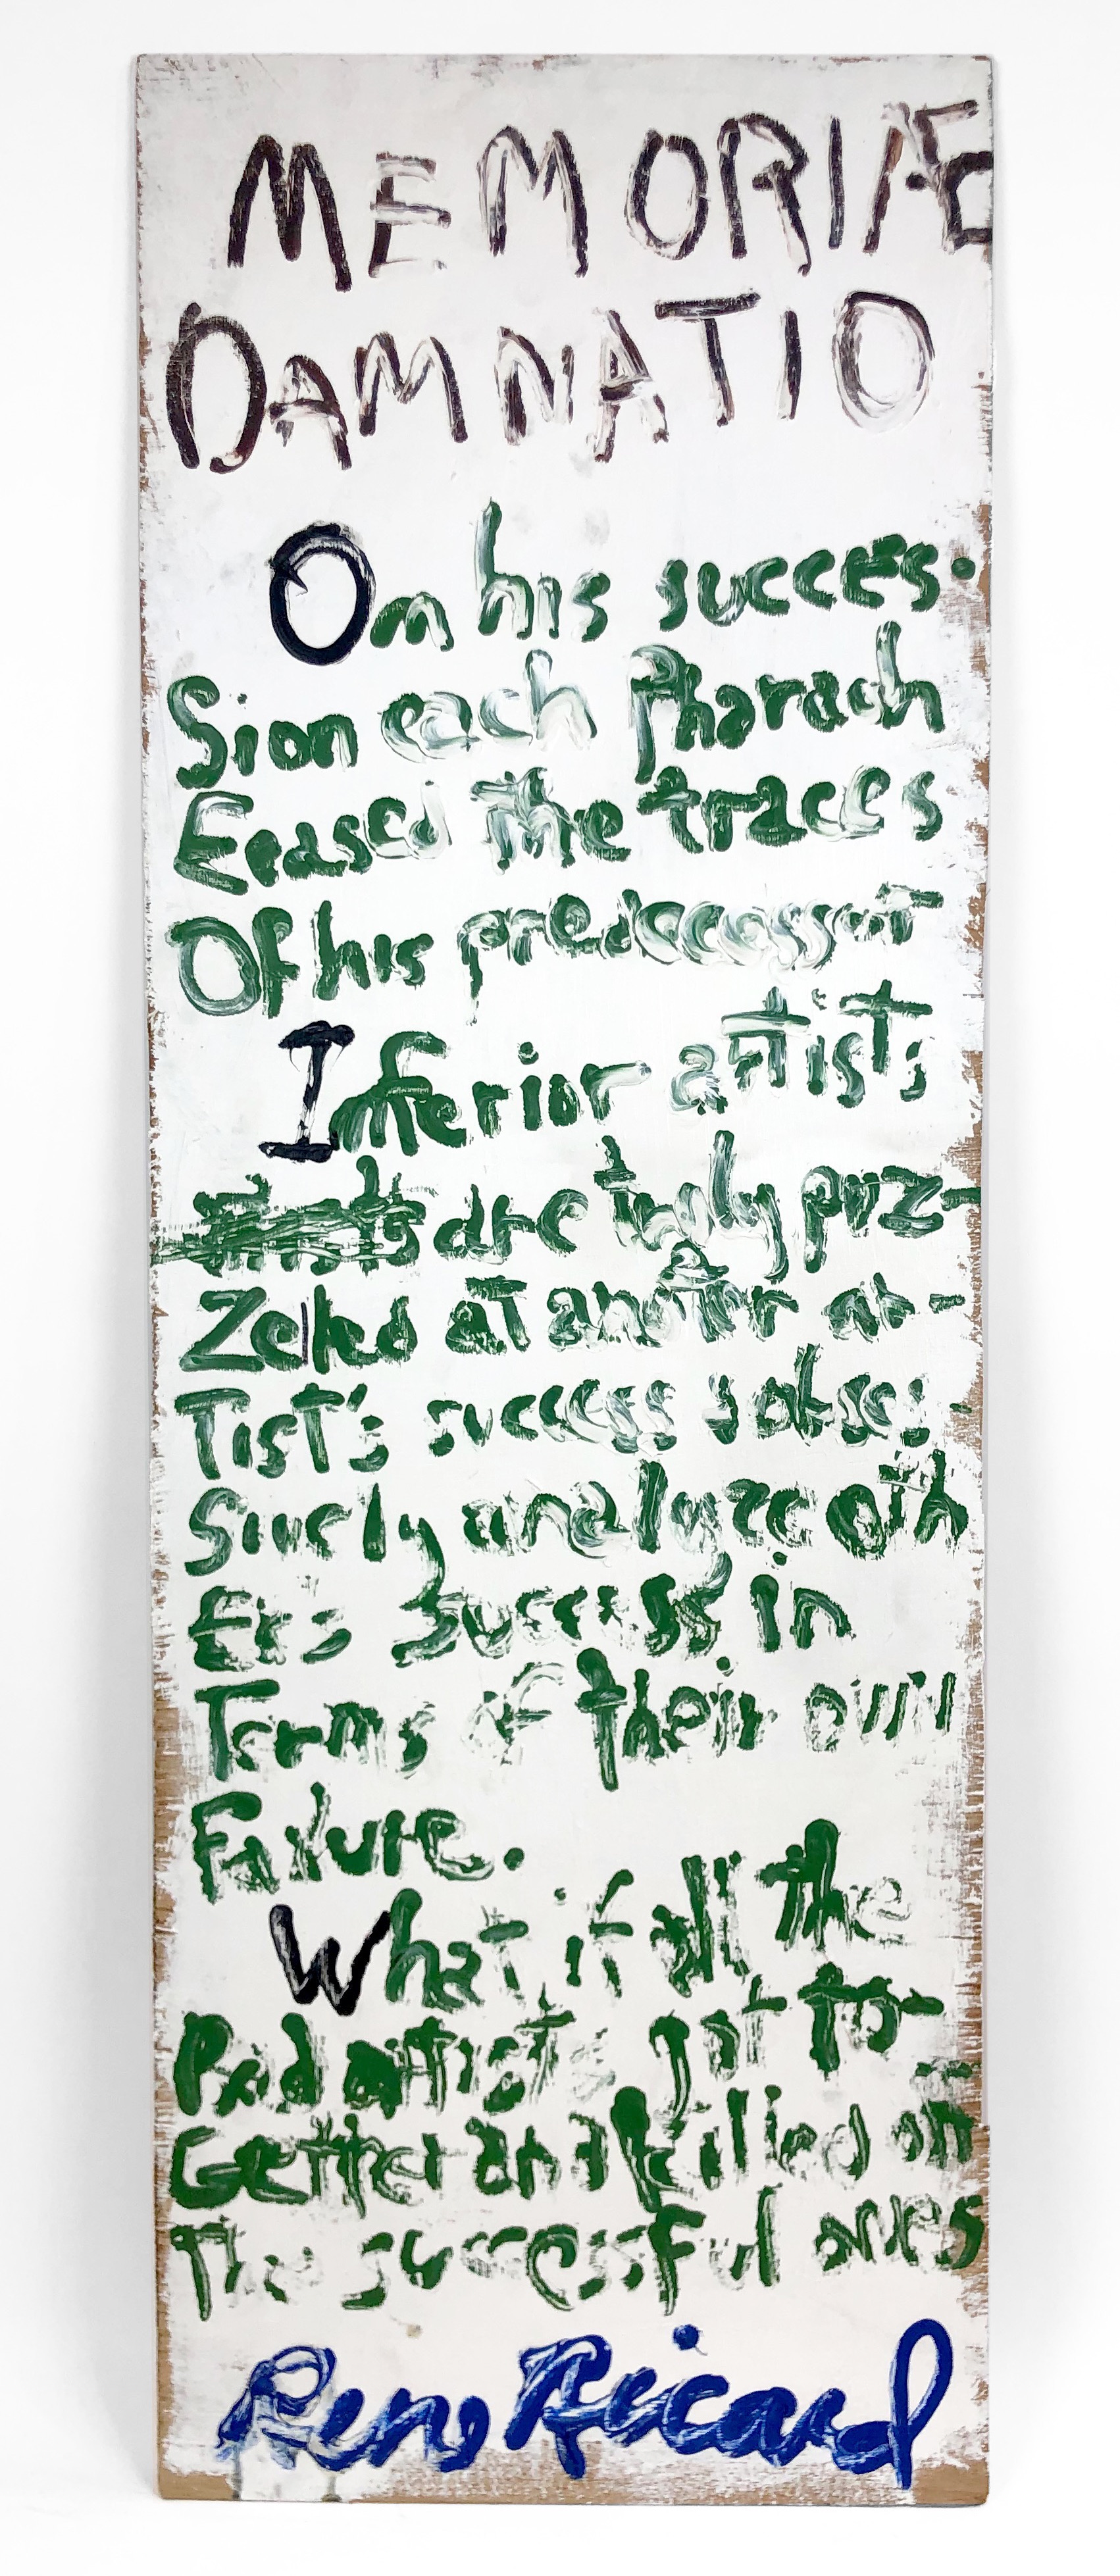 MEMORIÆ
DAMNATIO
On his succes-
Sion each Pharaoh
Erased the traces
Of his predecessor
Inferior artists
are truly puz-
Zeled at another ar-
Tist's success & obses-
Sively analyze oth
Er's success in
Terms of their own
Failure.
What if all the
Bad artists got to-
Gether and killed off
The successful ones
Rene Ricard